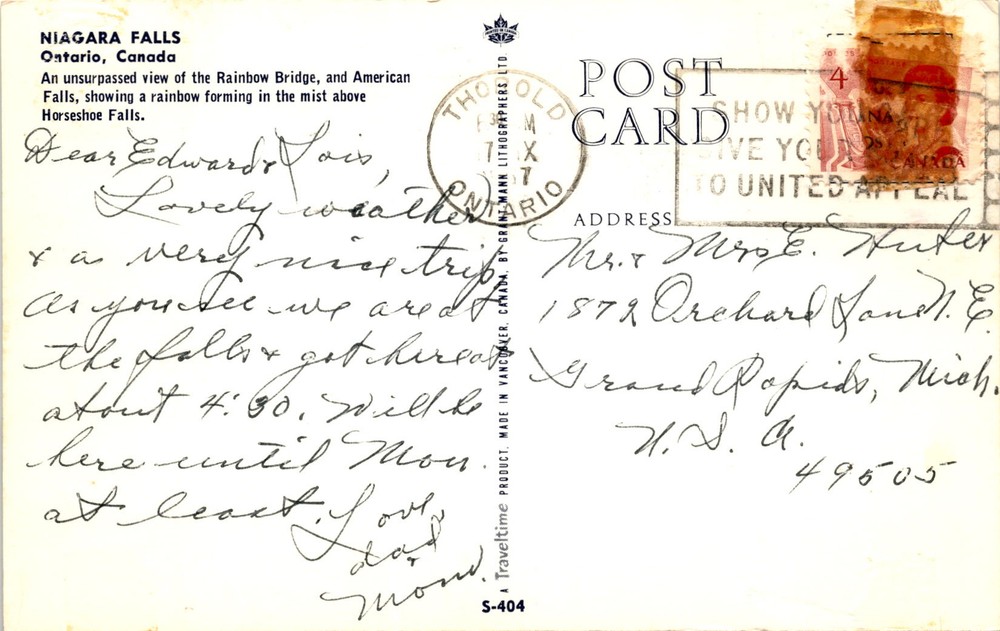 NIAGARA FALLS
Ontario, Canada
An unsurpassed view of the Rainbow Bridge, and American
Falls, showing a rainbow forming in the mist above
Horseshoe Falls.
Dear Edward & Lois,
Lovely weather
& a very nice trip
As you see we are at
the falls & got here at
about 4:30. Will be
here until Mon.
at least. Love,
dad
&
Mom.
PRINTED IN CANADA
A Traveltime PRODUCT, MADE IN VANCOUVER, CANADA, BY GRANT-MANN LITHOGRAPHERS LTD.
S-404
POST
CARD
ADDRESS
THOROLD
M
7 IX
67
ONTARIO
SHOW YOU
GIVE YOU
TO UNITED APPEAL
4
CANADA
Mr. & Mrs E. Huter
1872 Orchard Lane N.E.
Grand Rapids, Mich.
U.S.A.
49505